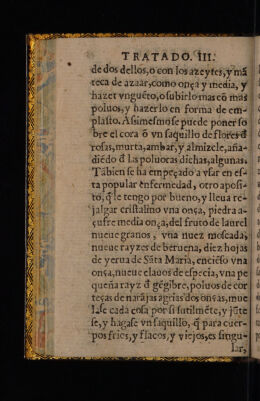 TRATADO. III.
de dos dellos, o con los azeytes, y mã
teca de azaar, como onça y media, y
hazer vnguẽto, o subirlo mas cõ mas
poluos, y hazerlo en forma de em-
plasto. Assimesmo se puede poner so
bre el coraõ vn saquillo de flores đ
rosas, murta, ambar, y almizcle, aña-
diẽdo đ las poluoras dichas, algunas.
Tãbien se ha empeçado a vsar en es-
ta popular enfermedad, otro aposi-
to, q̃ le tengo por bueno, y lleua re-
jalgar cristalino vna onça, piedra a-
çufre media onça, del fruto de laurel
nueue granos, vna nuez moscada,
nueue rayzes de beruena, diez hojas
de yerua de Sãta Maria, enciẽso vna
onça, nueue clauos de especia, vna pe
queña rayz đ gẽgibre, poluos de cor
teças de narãjas agrias dos onças, mue
lase cada cosa por si sutilmẽte, y jũte
se, y hagase vn saquillo, q̃ para cuer-
pos frios, y flacos, y viejos, es singu-
lar,